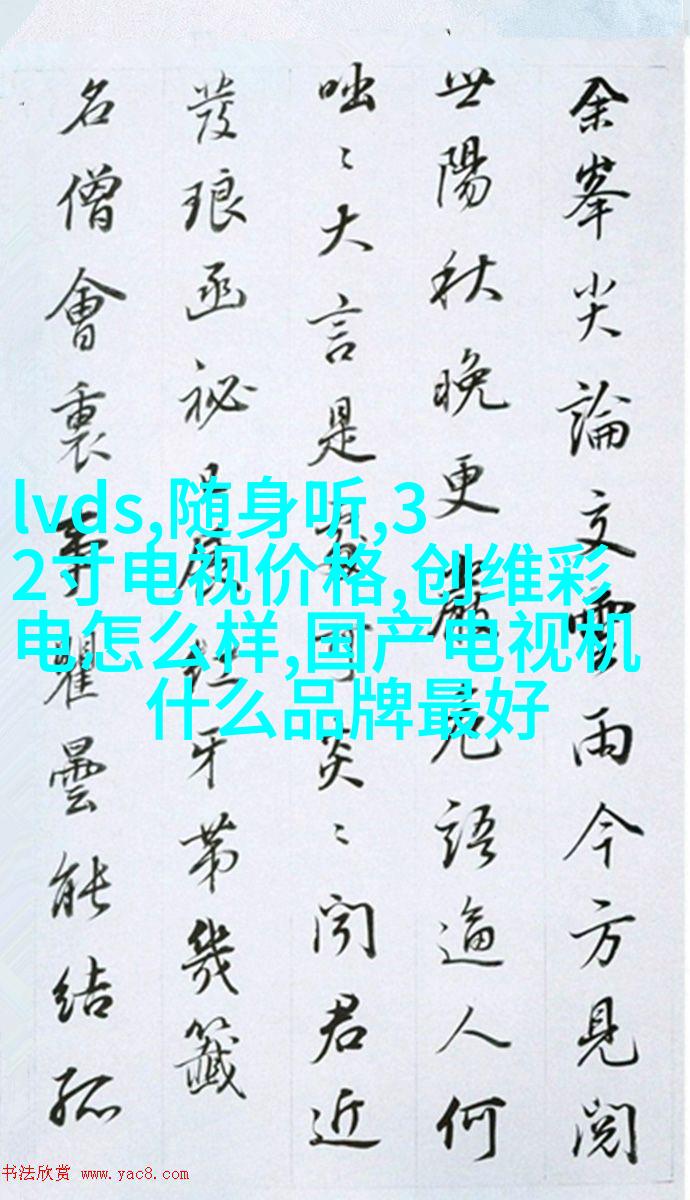 余峯尖論文雲雨今方見閲
世陽秋晚更嚴危語逼人何
咄〻大言是炎〻聞君近
發琅函祕牙苐幾籤
名僧會裏瞿曇能結孤
lvds,随身听,3
2寸电视价格,创维彩
电怎么样,国产电视机
什么品牌最好
书法欣赏 www.yac8.com